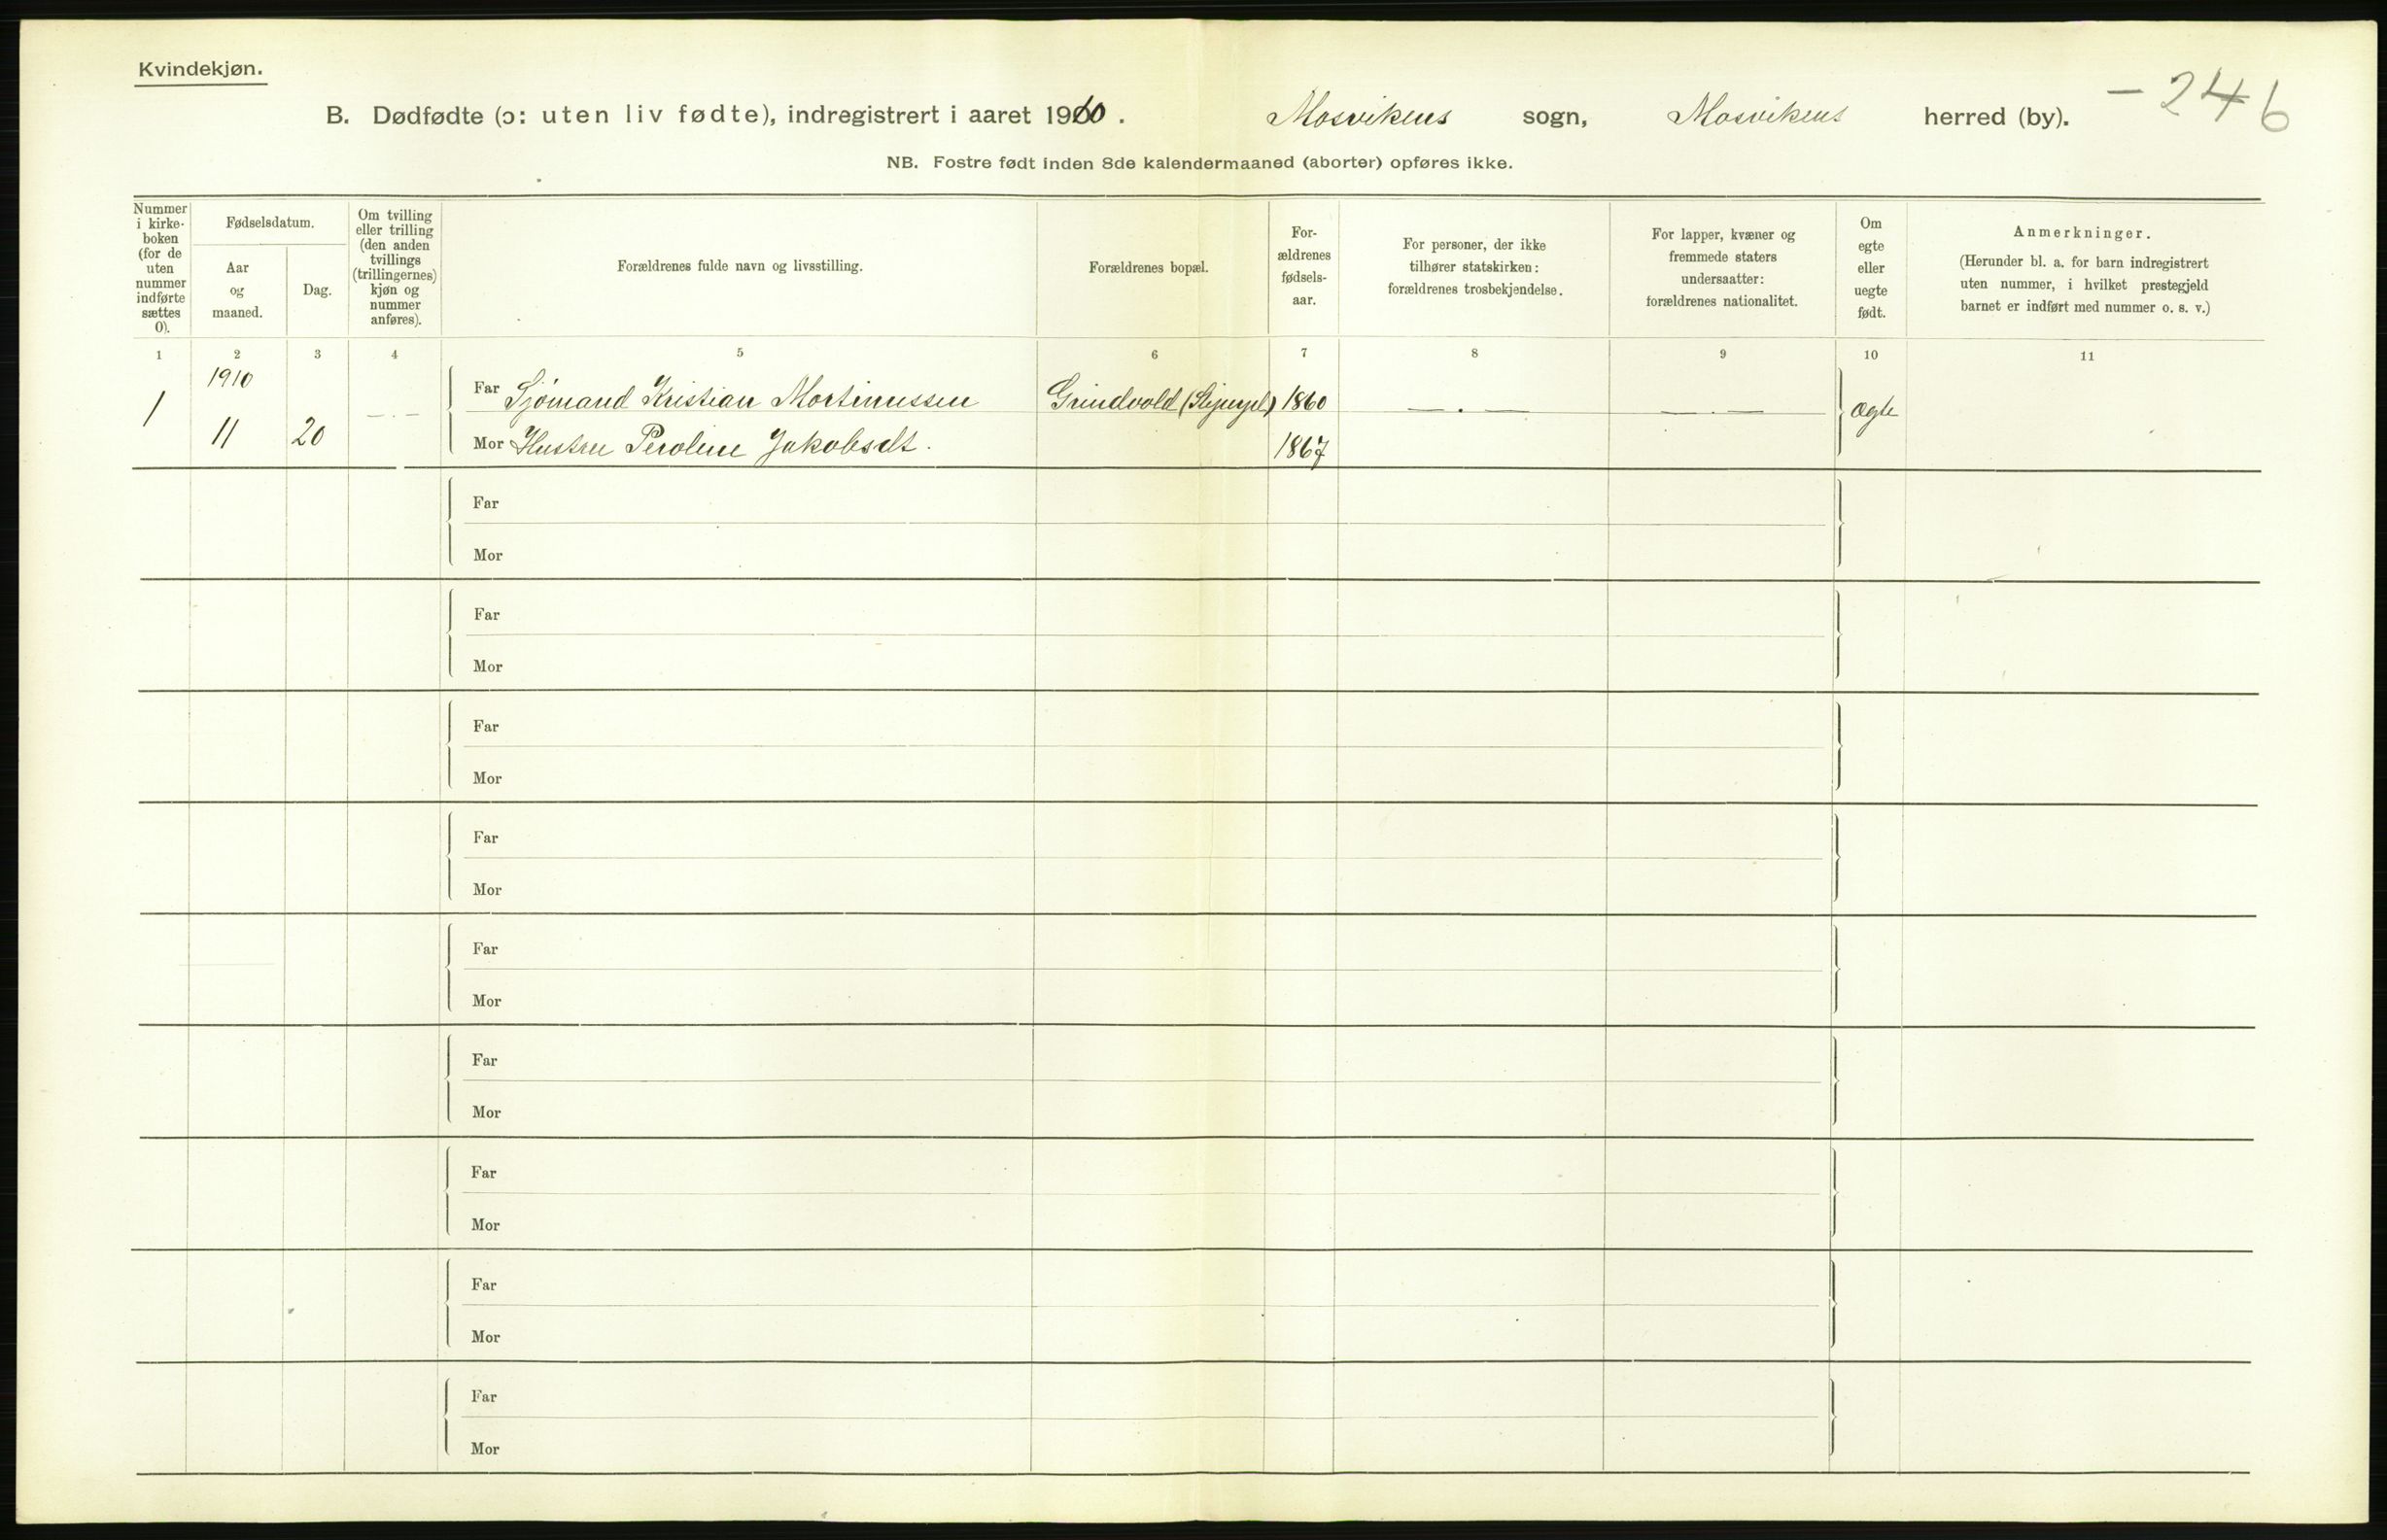 Kvindekjøn.
B. Dødfødte (ɔ: uten liv fødte), indregistrert i aaret 1910. Mosvikens sogn, Mosvikens herred (by).
- 246
NB. Fostre født inden 8de kalendermaaned (aborter) opføres ikke.
Nummer i kirke-boken (for de uten nummer indførte sættes 0).
Fødselsdatum.
Aar og maaned.
Dag.
Om tvilling eller trilling (den anden tvillings (trillingernes) kjøn og nummer anføres).
Forældrenes fulde navn og livsstilling.
Forældrenes bopæl.
For-ældrenes fødsels-aar.
For personer, der ikke tilhører statskirken: forældrenes trosbekjendelse.
For lapper, kvæner og fremmede staters undersaatter: forældrenes nationalitet.
Om egte eller uegte født.
Anmerkninger.
(Herunder bl. a. for barn indregistrert uten nummer, i hvilket prestegjeld barnet er indført med nummer o. s. v.)
1 2 3 4 5 6 7 8 9 10 11
1910
1 — . — Far Sjømand Kristian Martinussen Grindvold 1860 — . — — . — Ægte
11 20 Mor Hustru Peroline Jakobsdt. 1867
Far
Mor
Far
Mor
Far
Mor
Far
Mor
Far
Mor
Far
Mor
Far
Mor
Far
Mor
Far
Mor